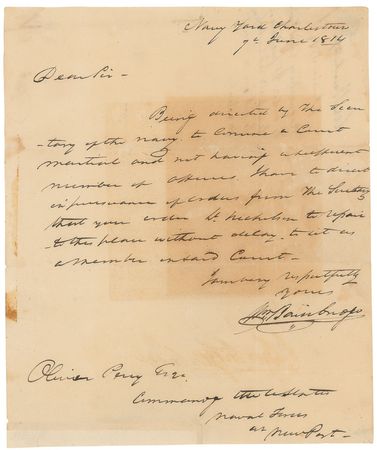 Navy Yard Charlestown
9th June 1814
Dear Sir -
Being directed by The Secre
-tary of the navy to Convene a Court
martial and not having a sufficient
number of officers I have to direct
in pursuance of orders from The Secretary
that you order Lt. Nicholson to repair
to this place without delay to sit as
a member in said Court -
I am very respectfully
yours
Wm Bainbridge
Oliver Perry Esqr.
Commandg the U States
Naval Forces
at New Port -